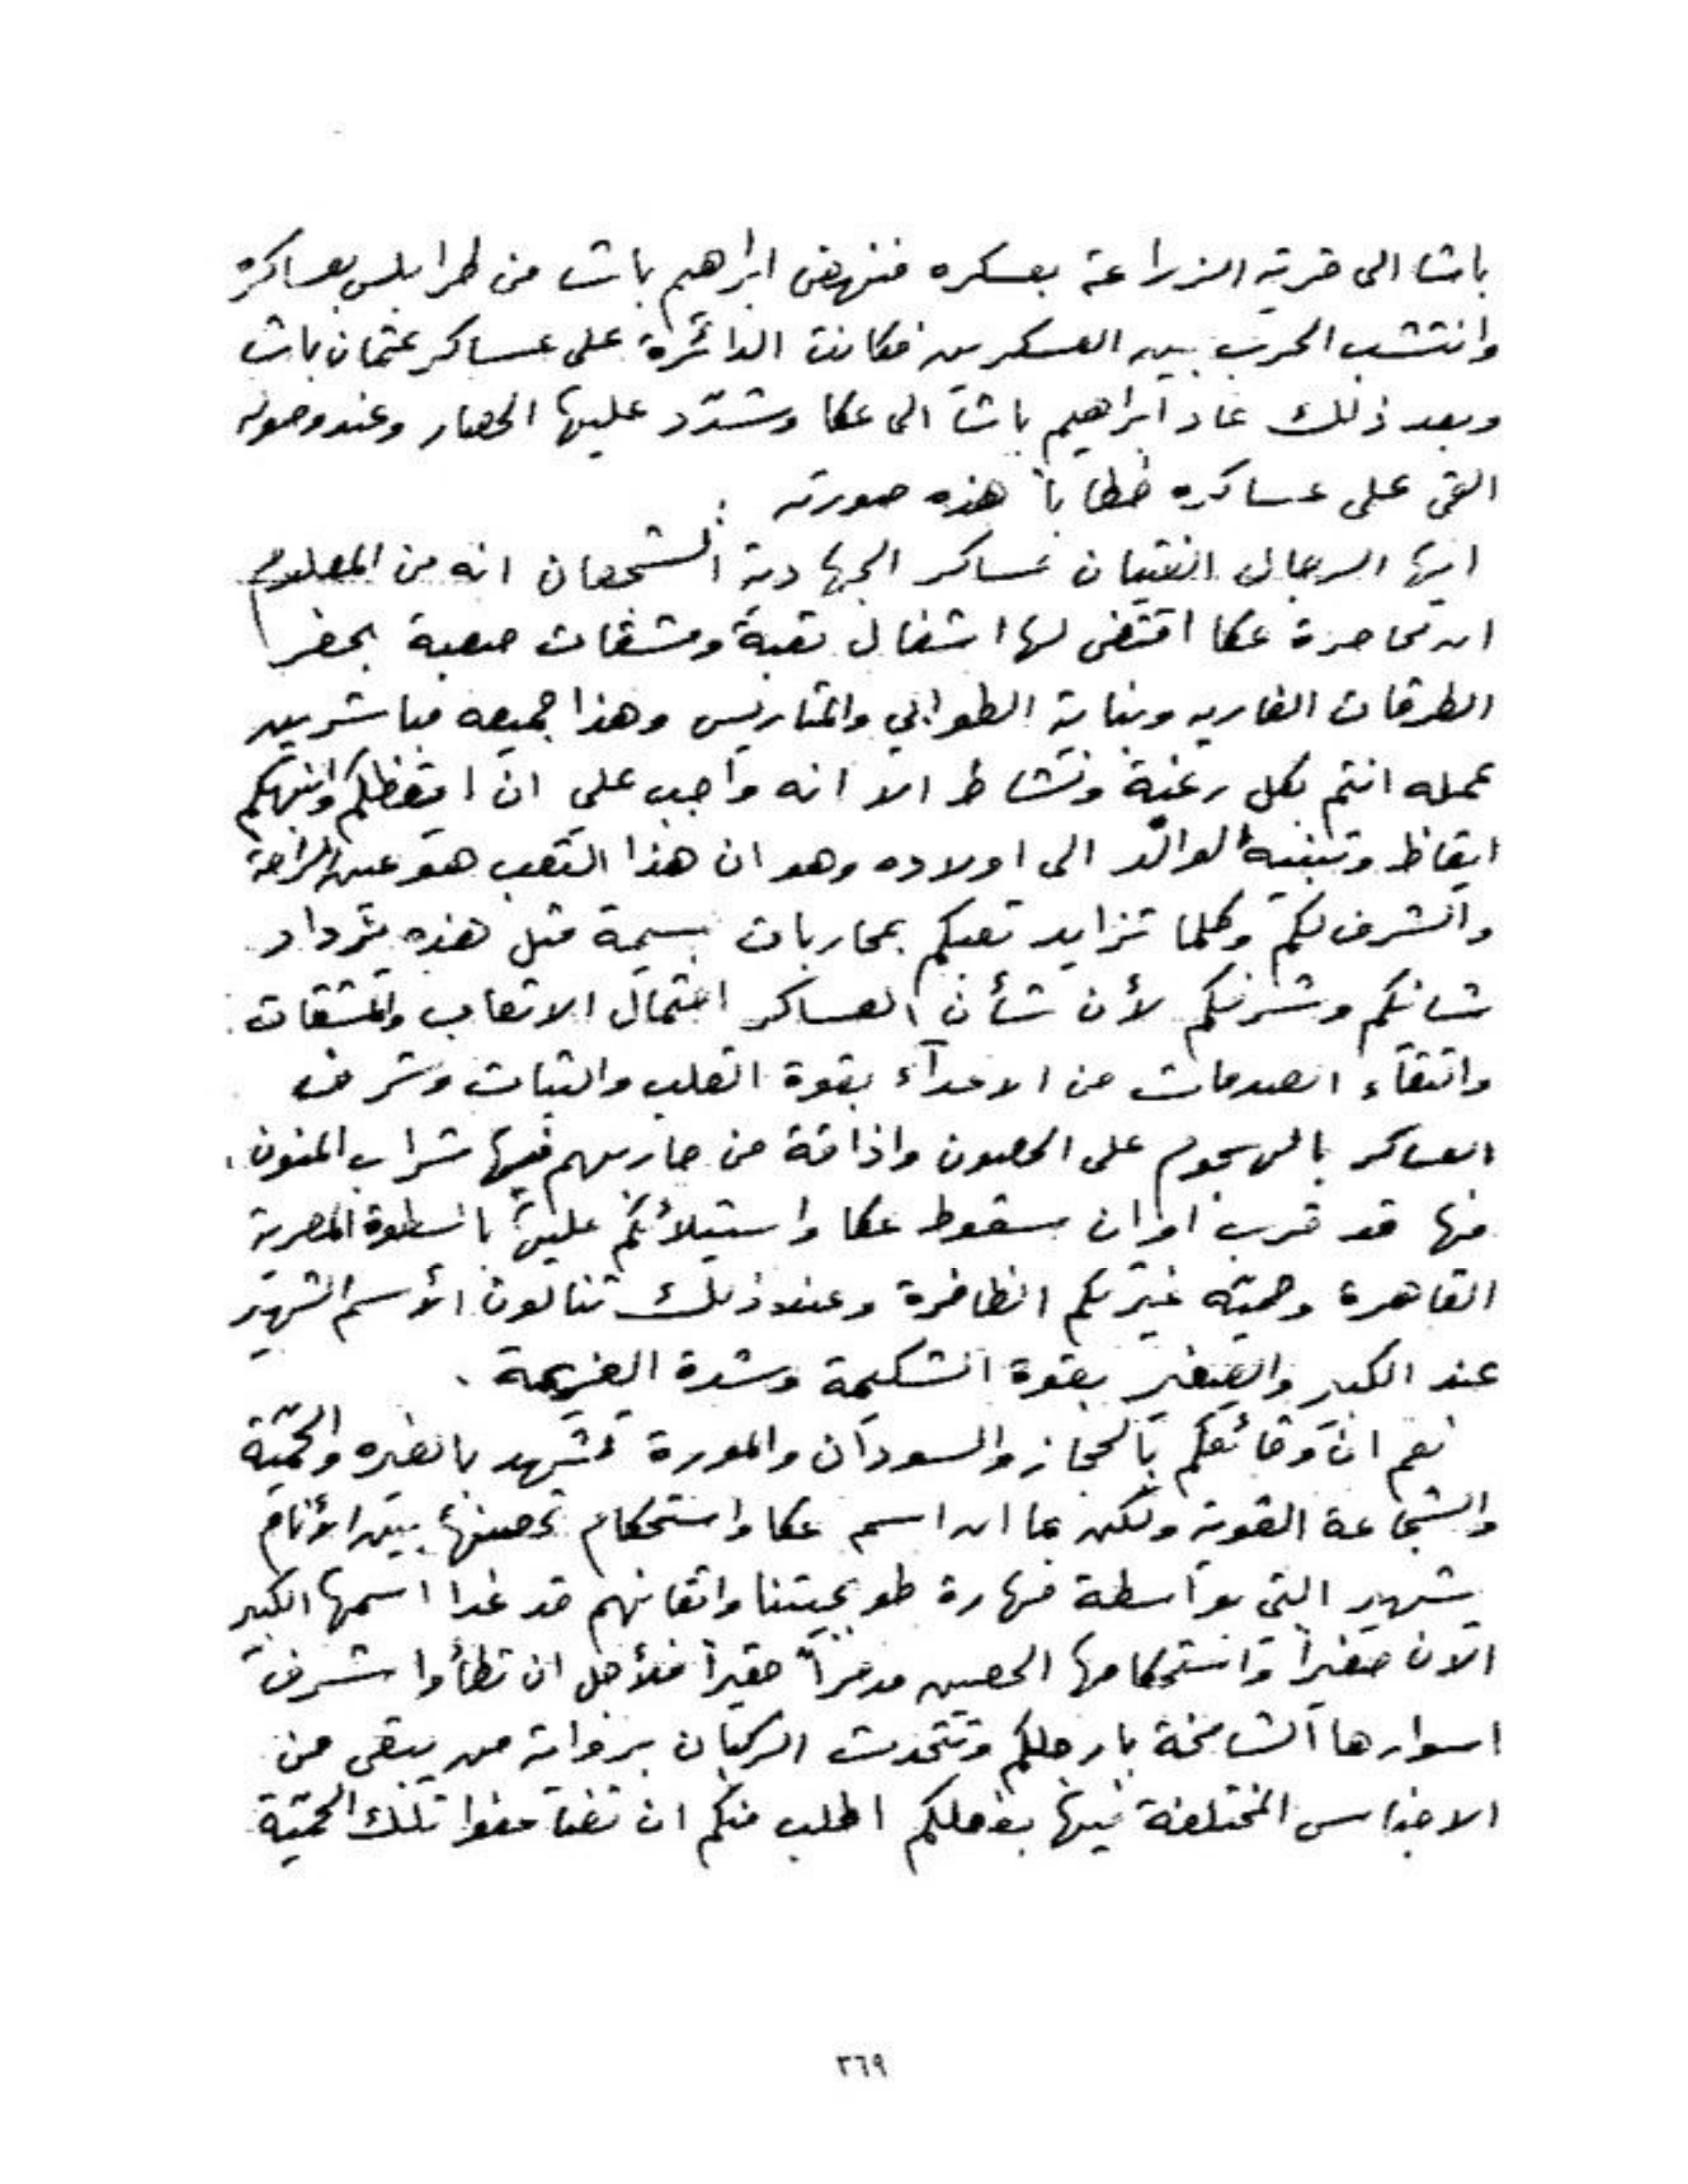 باشا الى قرية الزراعة بعسكره فنهض ابراهيم باشا من طرابلس بعساكره
وانتشب الحرب بين العسكرين فكانت الدائرة على عساكر عثمان باشا
وبعد ذلك عاد ابراهيم باشا الى عكا وشدّد عليها الحصار وعند وصوله
القى على عساكره خطاباً هذه صورته :
ايها الرجال الفتيان عساكر الجهادية الشجعان انه من المعلوم
ان محاصرة عكا اقتضى لها اشغال تعبة ومشقات صعبة بحفر
الطرقات الغاريه وبناية الطوابي والمتاريس وهذا جميعه مباشرين
عمله انتم بكل رغبة ونشاط الا انه واجب علي ان ايقظكم وانبهكم
ايقاظ وتنبيه الوالد الى اولاده وهو ان هذا التعب هو عين الراحة
والشرف لكم وكلما تزايد تعبكم بمحاربات جسيمة مثل هذه يزداد
شانكم وشرفكم لأن شأن العساكر احتمال الاتعاب والمشقات
والتقاء الصدمات من الاعداء بقوة القلب والثبات وشرف
العساكر بالهجوم على الحصون واذاقة من حاربهم فيها شراب المنون .
فها قد قرب اوان سقوط عكا واستيلائكم عليها بالسطوة المصرية
القاهرة وحمية غيرتكم الظافرة وعند ذلك تنالون الأسم الشهير
عند الكبير والصغير بقوة الشكيمة وشدة العزيمة .
نعم ان وقائعكم بالحجاز والسودان والمورة تشهد بالغيره والحميّة
والشجاعة القوية ولكن بما ان اسم عكا واستحكام تحصينها بين الأنام
شهير التي بواسطة مهارة طوبجيتنا واتقانهم قد غدا اسمها الكبير
الآن صغيراً واستحكامها الحصين مدمراً حقيراً فلأجل ان تطأوا شرف
اسوارها الشامخة بارجلكم وتتحدث الركبان برواية من يبقى من
الاجناس المختلفة فيها بفعلكم اطلب منكم ان تضاعفوا تلك الحميّة
٣٦٩